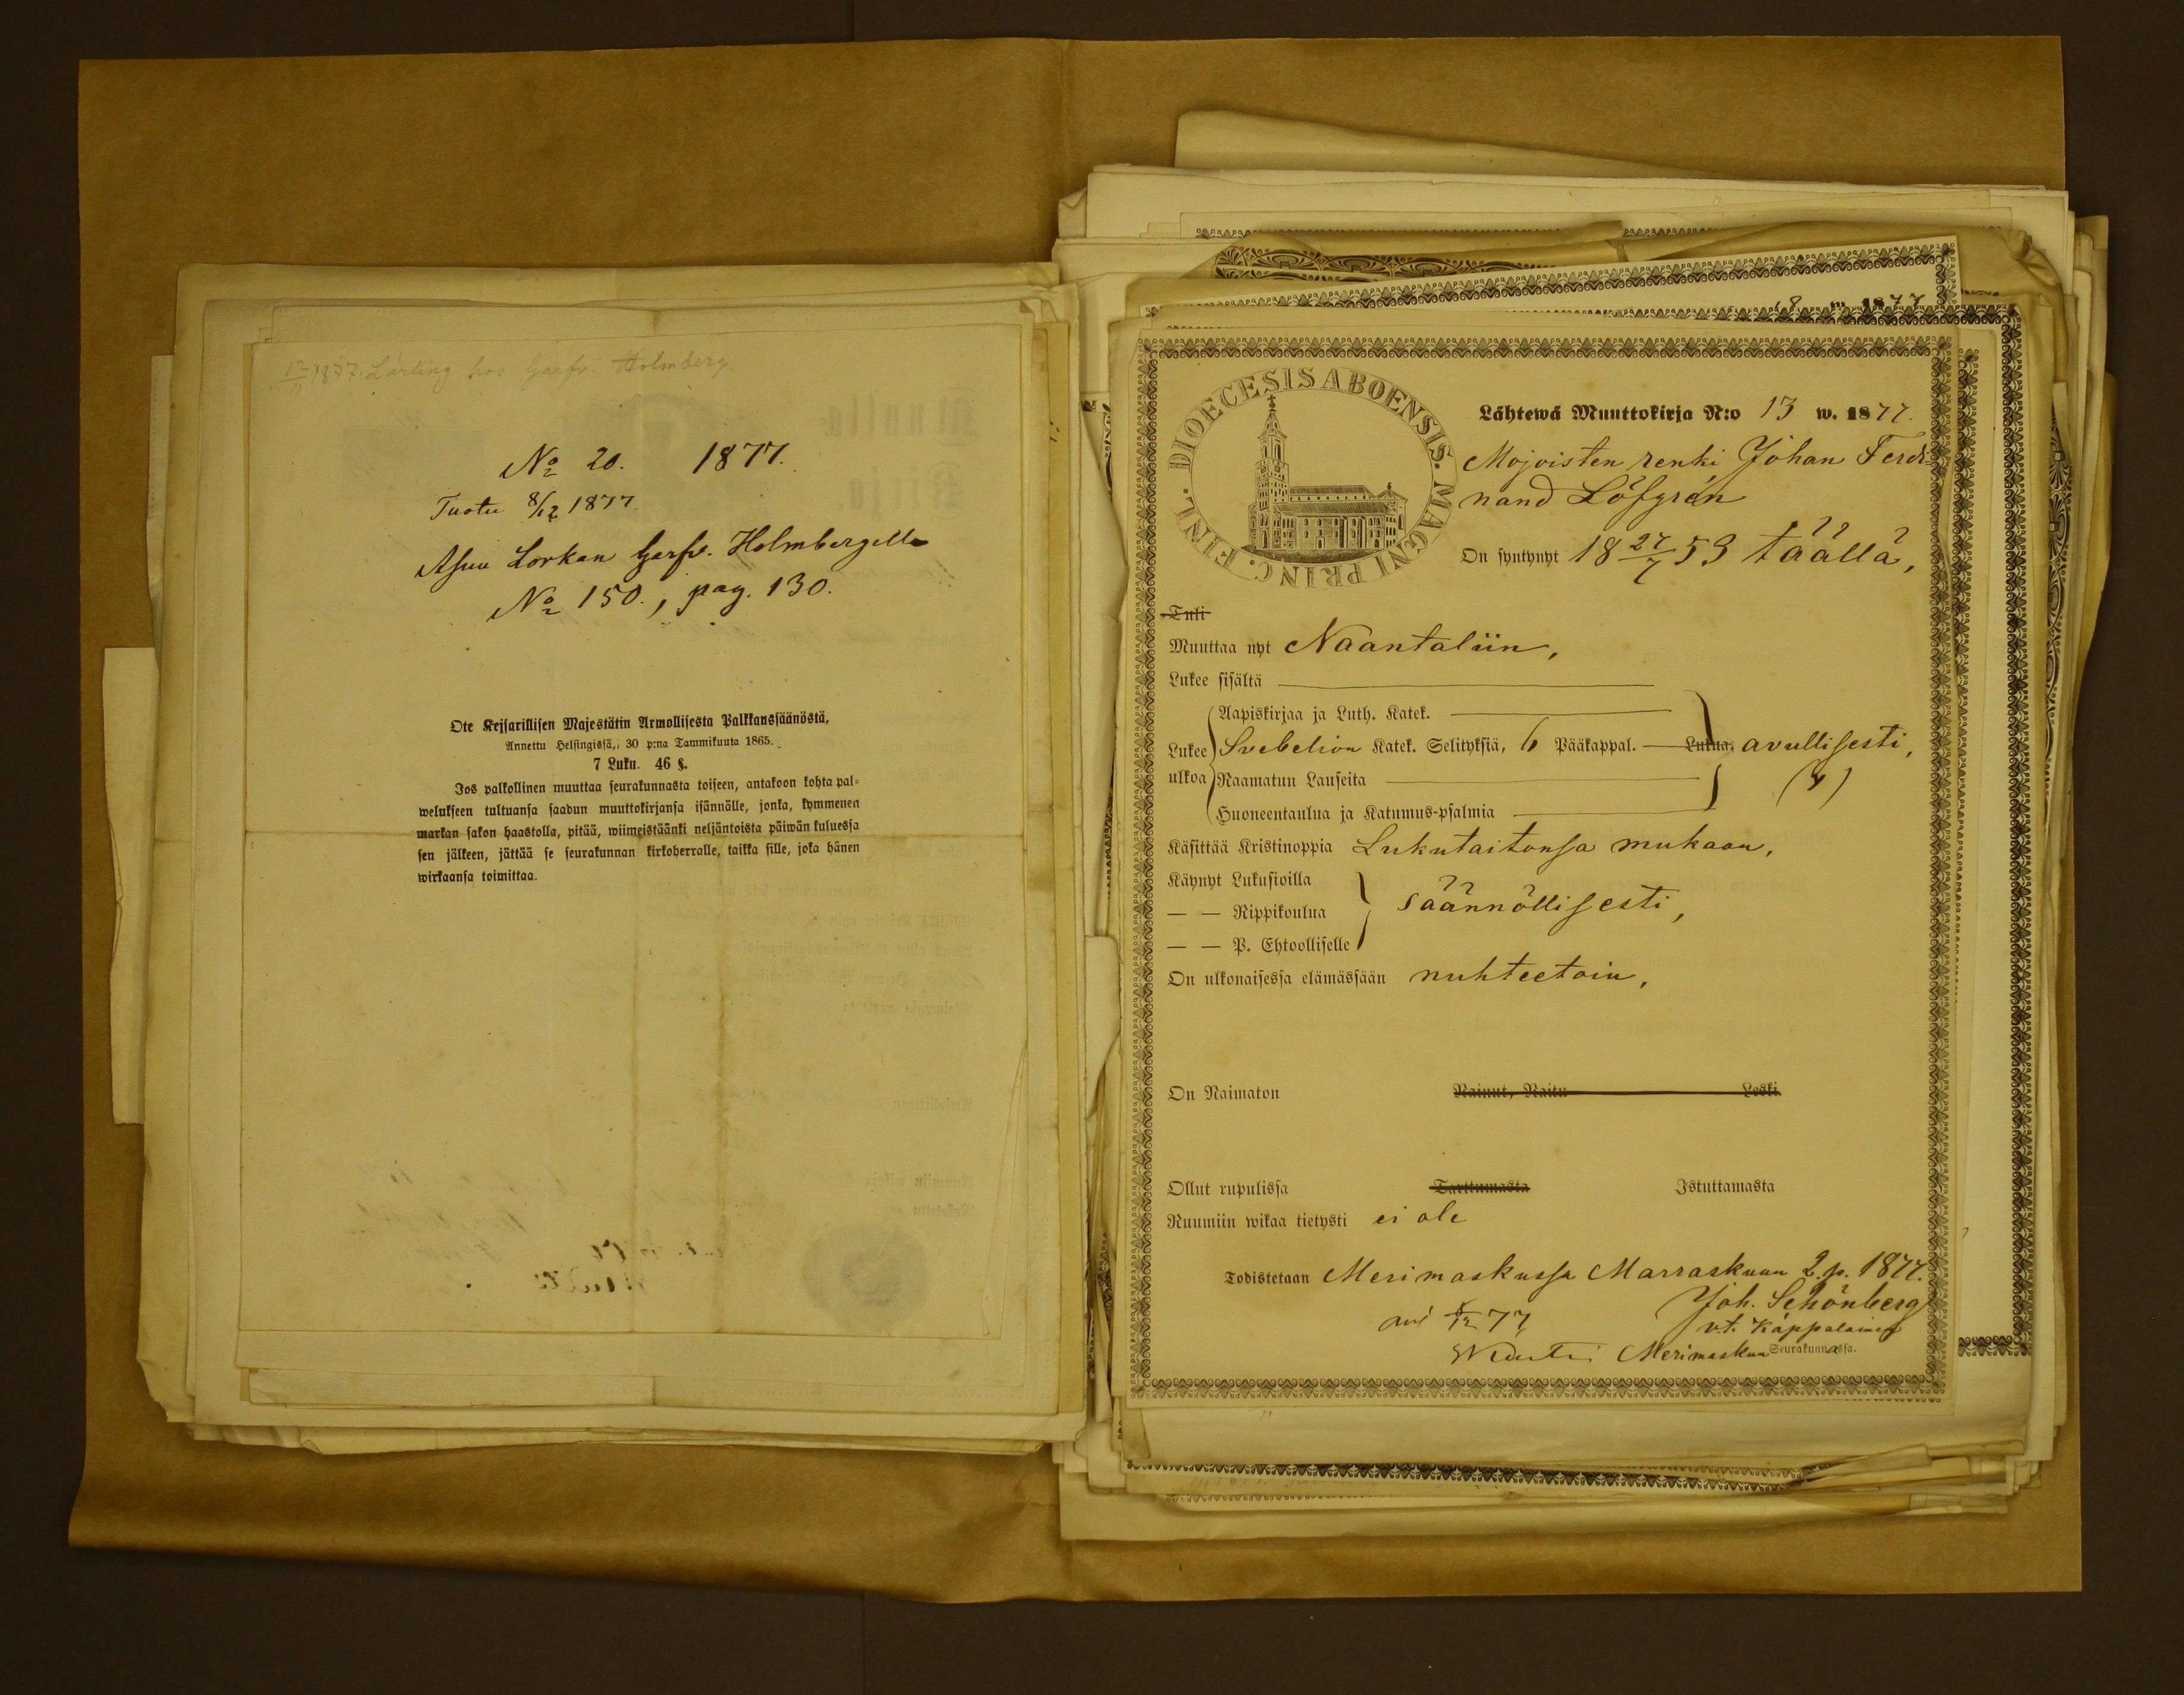 12/11 1877. Lärling hos Garfv. Holmberg.
No 20. 1877.
Tuotu 8/12 1877.
Asuu Lorkan Garfv. Holmbergella
No 150., pag. 130.
Ote Keisarillisen Majestätin Armollisesta Palkkanssäänöstä,
Annettu Helsingissä, 30 p:na Tammikuuta 1865.
7 Luku. 46 §.
Jos palkollinen muuttaa seurakunnasta toiseen, antakoon kohta pal=
welukseen tultuansa saadun muuttokirjansa isännälle, jonka, kymmenen
markan sakon haastolla, pitää, wiimeistäänki neljäntoista päiwän kuluessa
sen jälkeen, jättää se seurakunnan kirkoherralle, taikka sille, joka hänen
wirkaansa toimittaa.
18 1877
DIOECESIS ABOENSIS. MAGNI PRINC. FINL.
Lähtewä Muuttokirja N:o 13 w. 1877.
Mojoisten renki Johan Ferdi=
nand Löfgrén
On syntynyt 18 27/7 53 täällä,
Tuli
Muuttaa nyt Naantaliin,
Lukee sisältä
Aapiskirjaa ja Luth. Katek.
Lukee Svebelion Katek. Selityksiä, 6 Pääkappal. Lukua avullisesti,
ulkoa Raamatun Lauseita
Huoneentaulua ja Katumus-psalmia
Käsittää Kristinoppia Lukutaitonsa mukaan,
Käynyt Lukusioilla
— — Rippikoulua säännöllisesti,
— — P. Ehtoolliselle
On ulkonaisessa elämässään nuhteetoin,
On Naimaton Nainut, Naitu Leski
Ollut rupulissa Tarttumasta Istuttamasta
Ruumiin wikaa tietysti ei ole
Todistetaan Merimaskussa Marraskuun 2. p. 1877.
Joh. Schönberg
77 v.t. Kappalainen
Merimaskun Seurakunnassa.